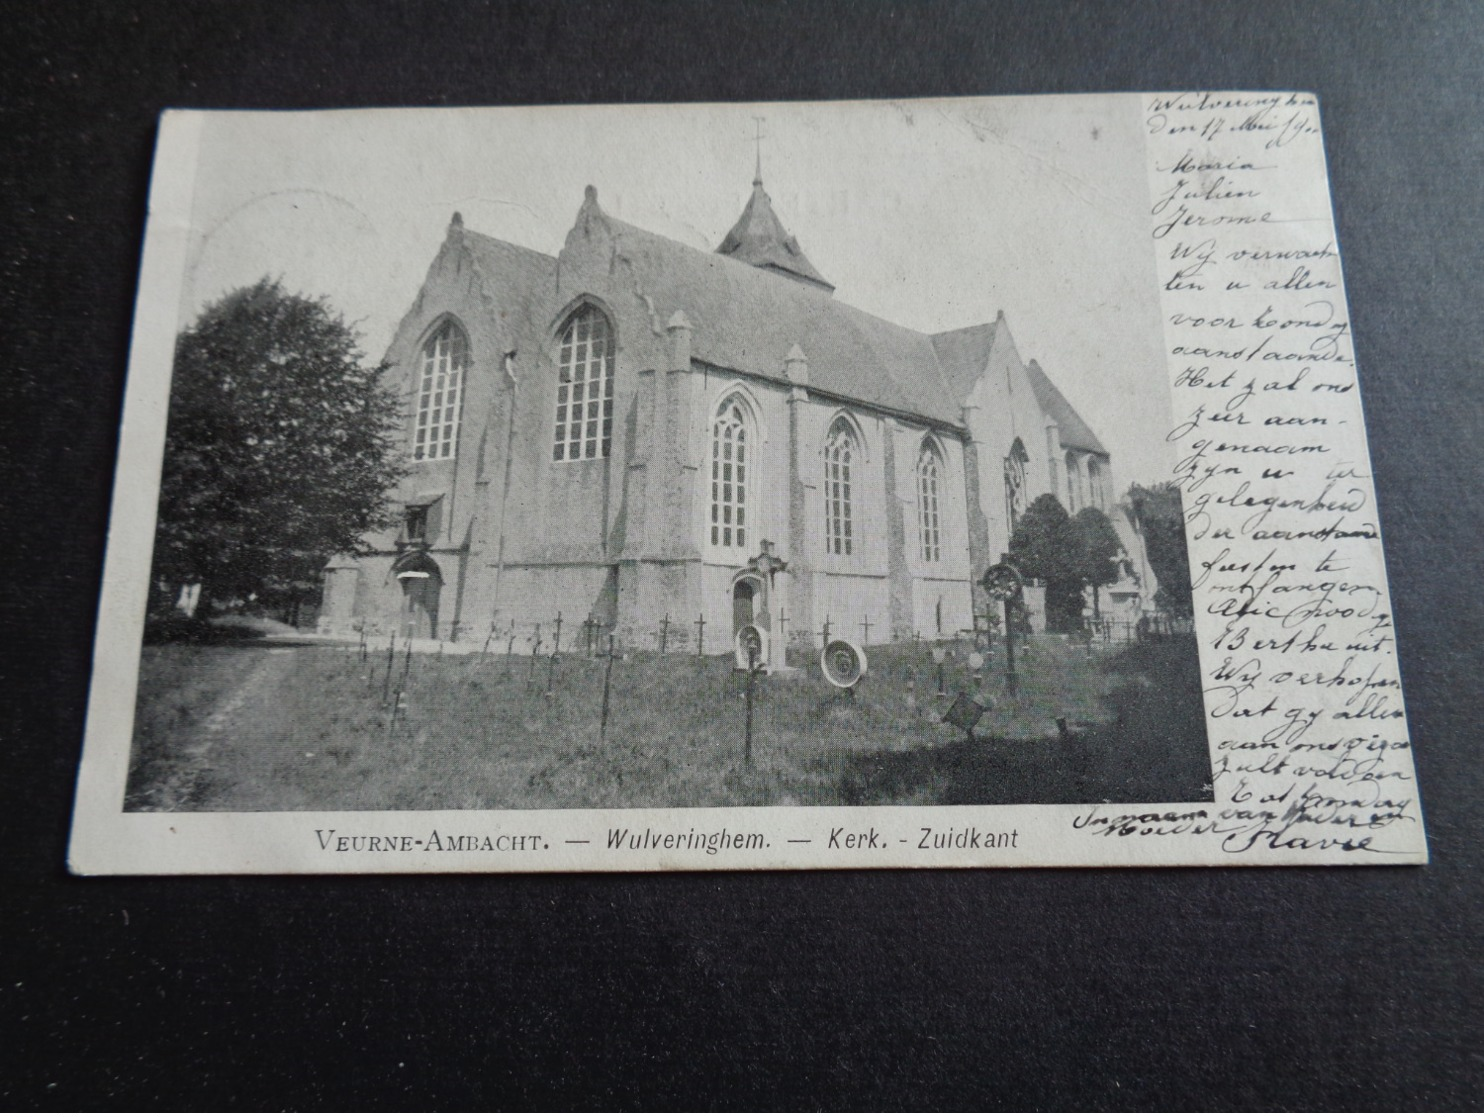 Wulveringhem
den 17 Mei 19
Maria
Julien
Jerome
Wij verwach
ten u allen
voor zondag
aanstaande.
Het zal ons
zeer aan-
genaam
zyn u ter
gelegenheid
der aanstaande
feesten te
ontfangen.
noodig
Bertha uit.
Wy verhopen
Dat gy allen
aan ons
zult voldoen
Tot zondag
In naam van Vader en
Moeder Flavie
VEURNE-AMBACHT. — Wulveringhem. — Kerk. - Zuidkant